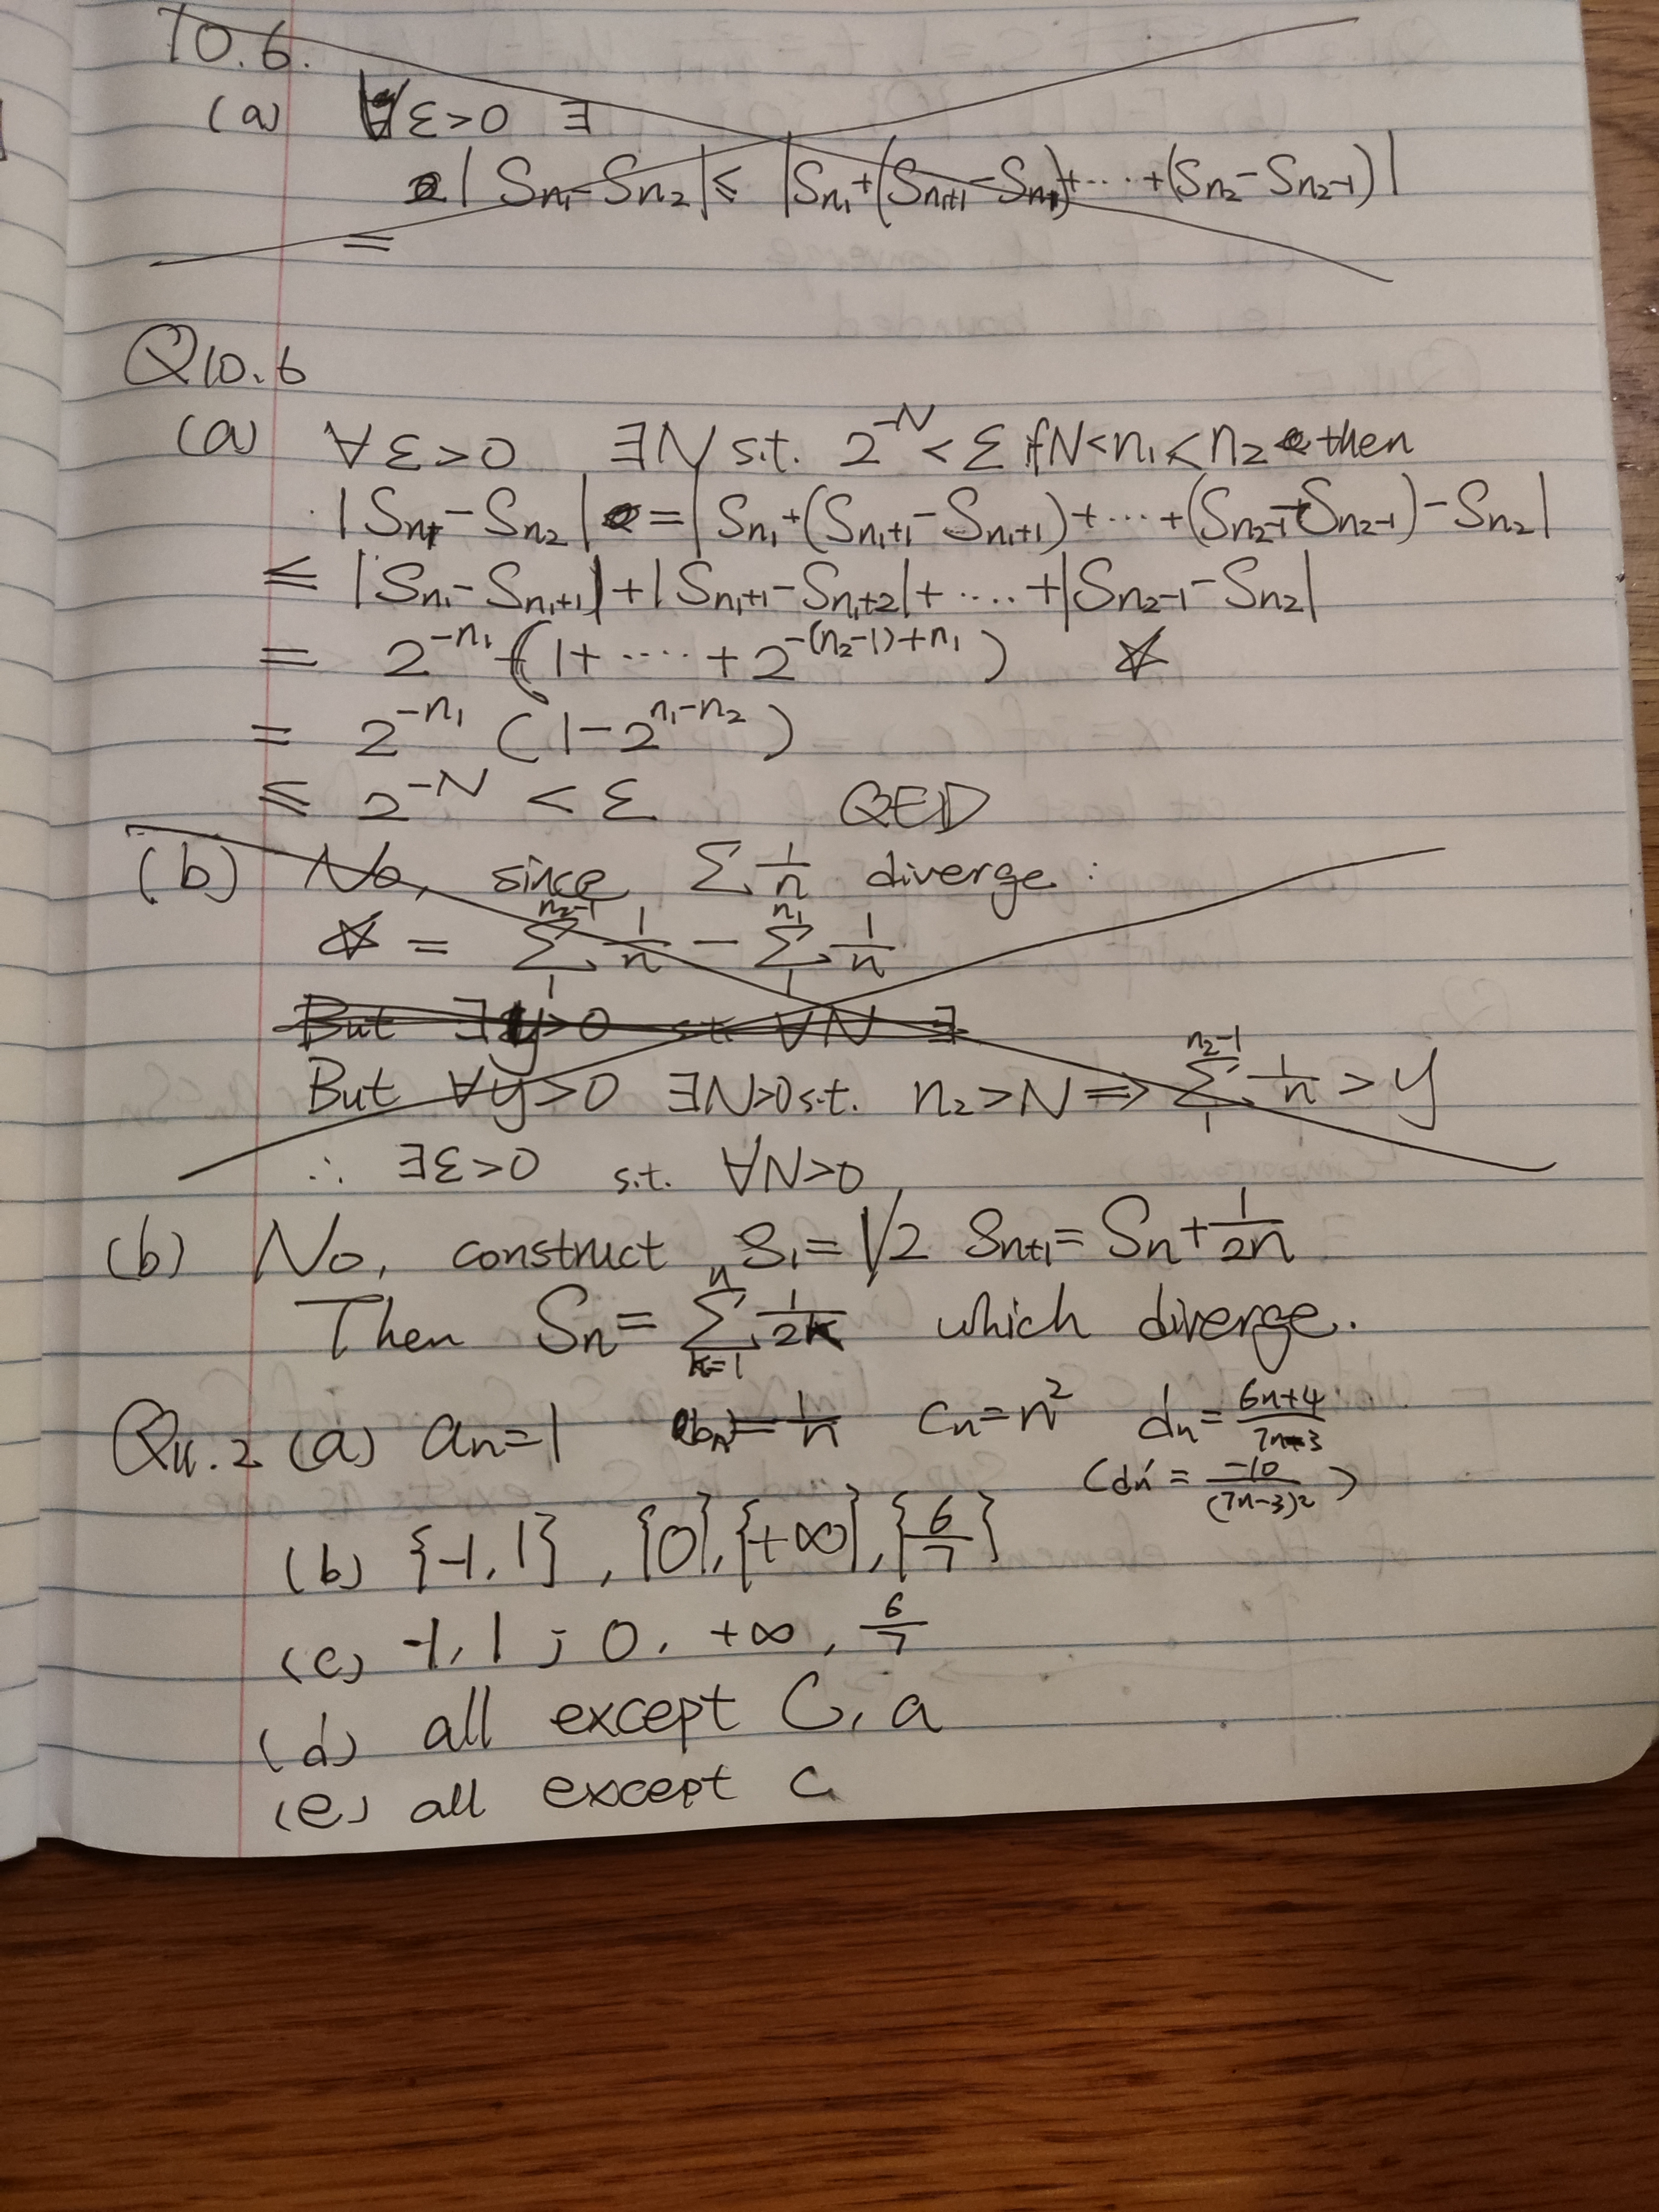 10.6.
(a) ∀ε>0 ∃
|Sn₁-Sn₂|≤ |Sn₁+(Sn₁+1-Sn₁)+····+(Sn₂-Sn₂-1)|
=
Q10.6
(a) ∀ε>0 ∃N s.t. 2^-N <ε if N<n₁<n₂ then
|Sn₁-Sn₂| = |Sn₁+(Sn₁+1-Sn₁+1)+···+(Sn₂-1-Sn₂-1)-Sn₂|
≤ |Sn₁-Sn₁+1|+|Sn₁+1-Sn₁+2|+····+|Sn₂-1-Sn₂|
= 2^-n₁ (1+····+2^-(n₂-1)+n₁) ☆
= 2^-n₁ (1-2^n₁-n₂)
≤ 2^-N <ε QED
(b) No, since Σ 1/n diverge:
☆ = Σ_1^n₂-1 1/n - Σ_1^n₁ 1/n
But ∃y>0 s.t. ∀N ∃
But ∀y>0 ∃N>0 s.t. n₂>N ⇒ Σ_1^n₂-1 1/n >y
∴ ∃ε>0 s.t. ∀N>0
(b) No, construct S₁=1/2 Sn+1=Sn+1/2n
Then Sn= Σ_k=1^n 1/2k which diverge.
Q11.2 (a) an=1 (bn)=1/n cn=n² dn=6n+4/7n-3
(dn'=-10/(7n-3)²)
(b) {-1,1}, {0},{+∞},{6/7}
(c) -1,1; 0, +∞, 6/7
(d) all except C, a
(e) all except c